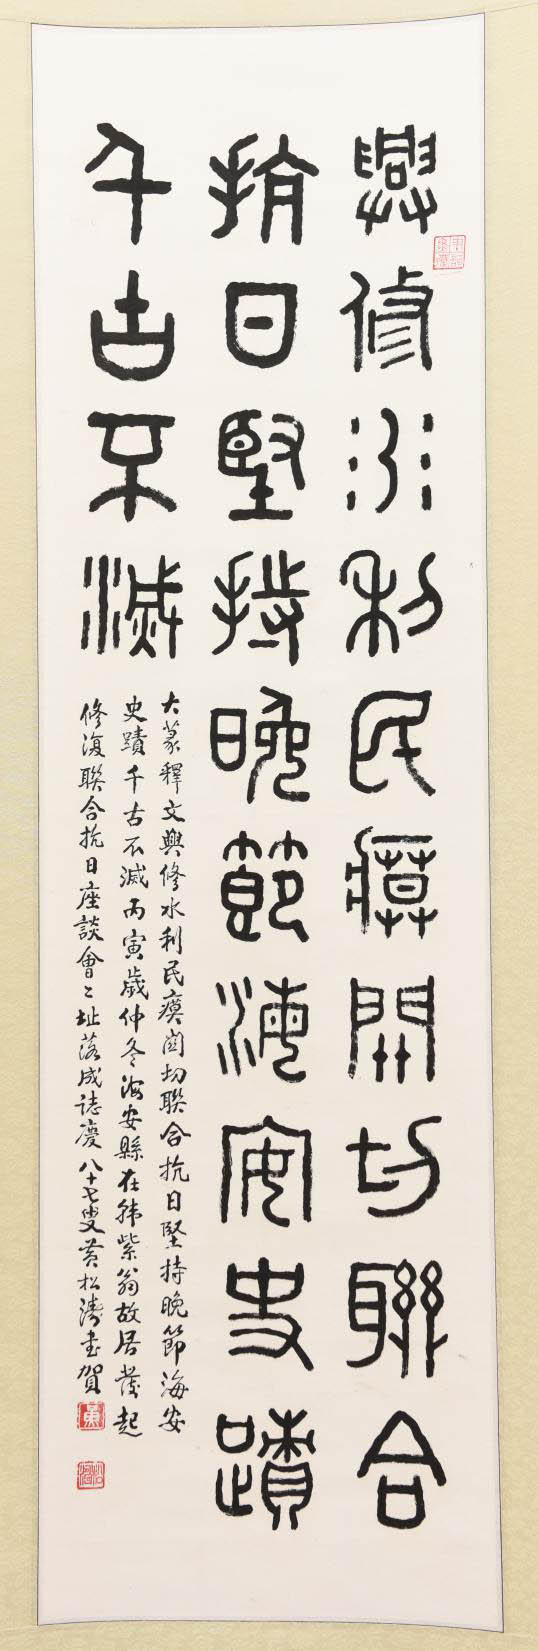 興修水利民瘼關切聯合
抗日堅持晚節海安史蹟
千古不滅
大篆釋文興修水利民瘼關切聯合抗日堅持晚節海安
史蹟千古不滅丙寅歲仲冬海安縣在韓紫翁故居發起
修復聯合抗日座談會々址落成誌慶八十七叟黃松濤書賀